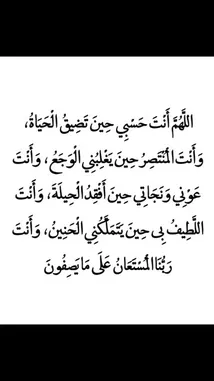 اللَّهُمَّ أَنْتَ حَسْبِي حِينَ تَضِيقُ الْحَيَاةُ،
وَأَنْتَ الْمُنْتَصِرُ حِينَ يَغْلِبُنِي الْوَجَعُ، وَأَنْتَ
عَوْنِي وَنَجَاتِي حِينَ أَفْقِدُ الْحِيلَةَ، وَأَنْتَ
اللَّطِيفُ بِى حِينَ يَتَمَلَّكُنِي الْحَنِينُ، وَأَنْتَ
رَبُّنَا الْمُسْتَعَانُ عَلَى مَا يَصِفُونَ